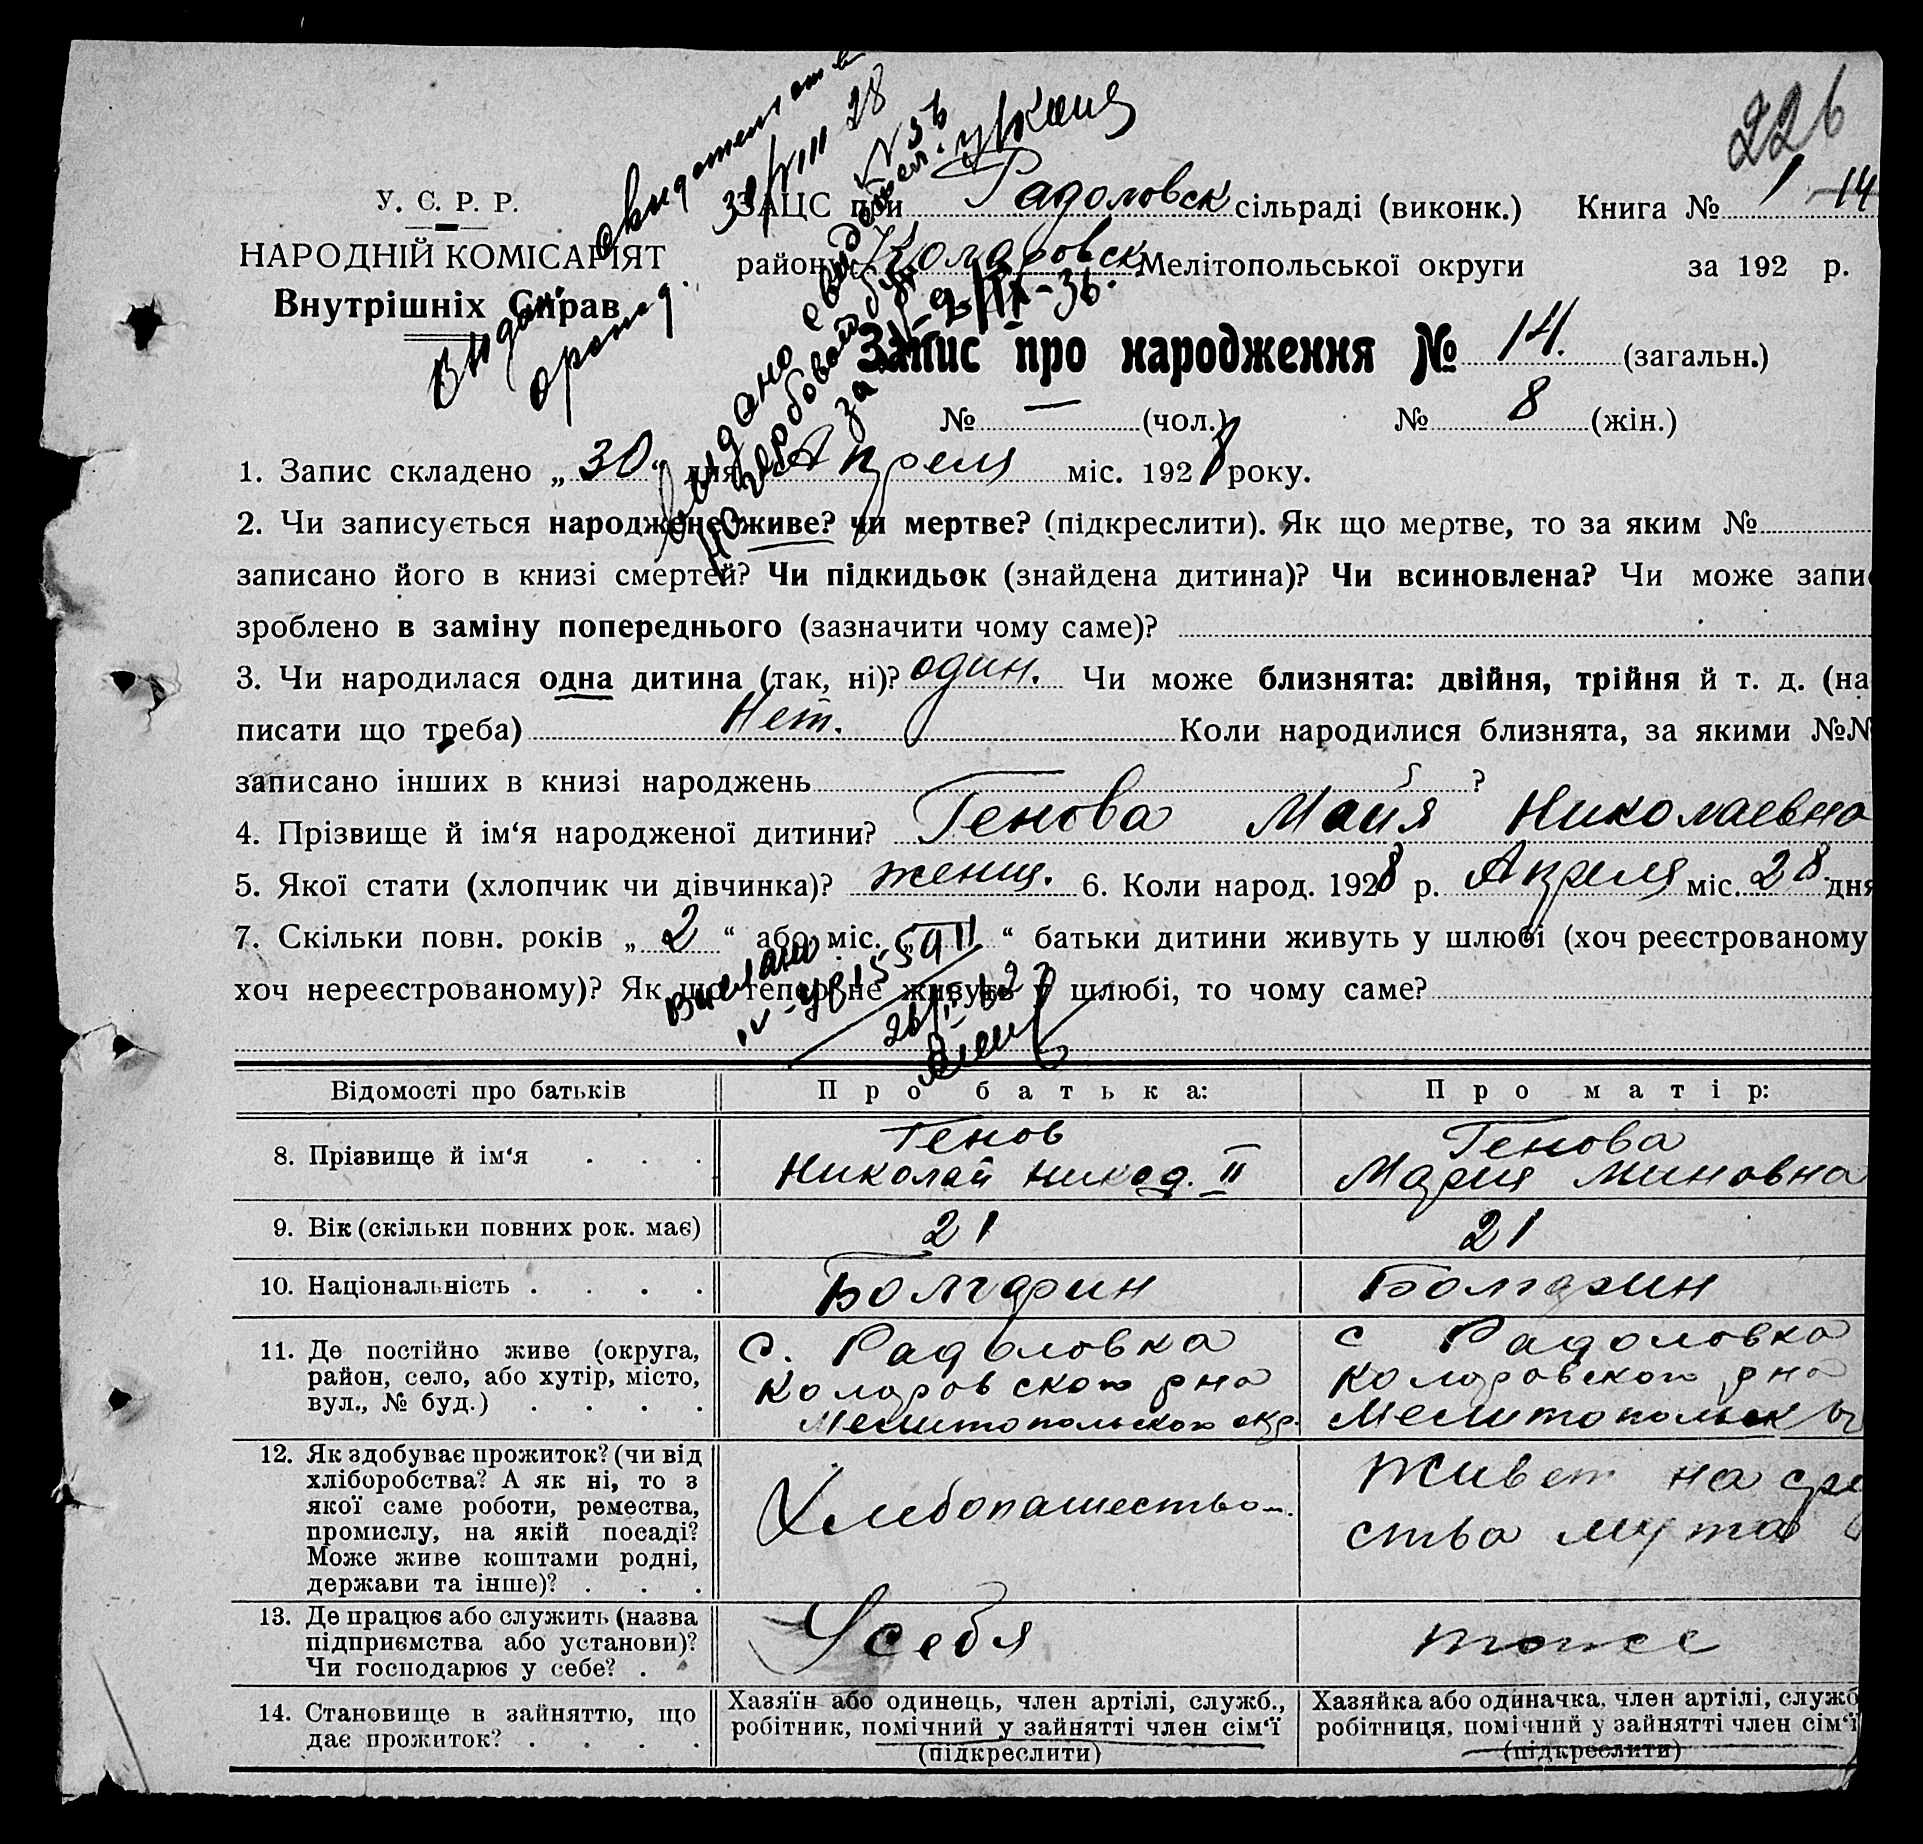 226
У. С. Р. Р.
НАРОДНІЙ КОМІСАРІЯТ
Внутрішніх Справ
ЗАЦС при Радоловск сільраді (виконк.) Книга № 1 14
району Коларовск Мелітопольської округи за 192 р.
Запис про народження № 14. (загальн.)
№ — (чол.) № 8 (жін.)
1. Запис складено „ 30 “ дня Апреля міс. 1928 року.
2. Чи записується народжене живе? чи мертве? (підкреслити). Як що мертве, то за яким №
записано його в книзі смертей? Чи підкидьок (знайдена дитина)? Чи всиновлена? Чи може запи
зроблено в заміну попереднього (зазначити чому саме)?
3. Чи народилася одна дитина (так, ні)? один. Чи може близнята: двійня, трійня й т. д. (на
писати що треба) Нет. Коли народилися близнята, за якими №№
записано інших в книзі народжень ?
4. Прізвище й ім‘я народженої дитини? Генова Майя Николаевна
5. Якої стати (хлопчик чи дівчинка)? женщ. 6. Коли народ. 1928 р. Апреля міс. 28 дня
7. Скільки повн. років „ 2 “ або міс. „ “ батьки дитини живуть у шлюбі (хоч реєстрованому
хоч нереєстрованому)? Як що тепер не живуть у шлюбі, то чому саме?
Відомості про батьків Про батька: Про матір:
8. Прізвище й ім‘я Генов Николай Никод. II Генова Мария Миновна
9. Вік (скільки повних рок. має) 21 21
10. Національність Болгарин Болгарин
11. Де постійно живе (округа,
район, село, або хутір, місто,
вул., № буд.)
с. Радоловка
Коларовского рна
Мелитопольского окр.
с Радоловка
Коларовского рна
Мелитопольск
12. Як здобуває прожиток? (чи від
хліборобства? А як ні, то з
якої саме роботи, ремества,
промислу, на якій посаді?
Може живе коштами родні,
держави та інше)?
Хлебопашество
Живет на сре
ства мужа
13. Де працює або служить (назва
підприємства або установи)?
Чи господарює у себе?
У себя
тоже
14. Становище в зайняттю, що
дає прожиток?
Хазяїн або одинець, член артілі, служб.,
робітник, помічний у зайнятті член сім‘ї
(підкреслити)
Хазяйка або одиначка, член артілі, служб
робітниця, помічний у зайнятті член сім‘ї
(підкреслити)